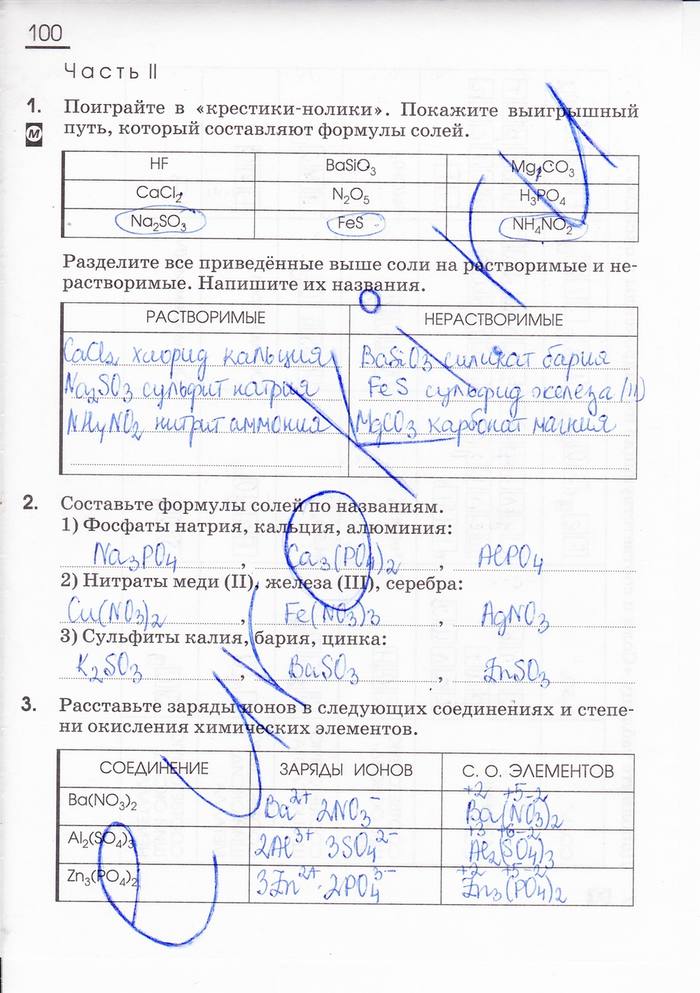 100
Часть II
1. Поиграйте в «крестики-нолики». Покажите выигрышный
М путь, который составляют формулы солей.
HF BaSiO₃ Mg₂CO₃
CaCl₂ N₂O₅ H₃PO₄
Na₂SO₃ FeS NH₄NO₂
Разделите все приведённые выше соли на растворимые и не-
растворимые. Напишите их названия.
РАСТВОРИМЫЕ НЕРАСТВОРИМЫЕ
CaCl₂ хлорид кальция BaSiO₃ силикат бария
Na₂SO₃ сульфит натрия FeS сульфид железа (II)
NH₄NO₂ нитрит аммония MgCO₃ карбонат магния
2. Составьте формулы солей по названиям.
1) Фосфаты натрия, кальция, алюминия:
Na₃PO₄ , Ca₃(PO₄)₂ , AlPO₄
2) Нитраты меди (II), железа (III), серебра:
Cu(NO₃)₂ , Fe(NO₃)₃ , AgNO₃
3) Сульфиты калия, бария, цинка:
K₂SO₃ , BaSO₃ , ZnSO₃
3. Расставьте заряды ионов в следующих соединениях и степе-
ни окисления химических элементов.
СОЕДИНЕНИЕ ЗАРЯДЫ ИОНОВ С. О. ЭЛЕМЕНТОВ
+2 +5 -2
Ba(NO₃)₂ Ba²⁺ 2NO₃⁻ Ba(NO₃)₂
+3 +6 -2
Al₂(SO₄)₃ 2Al³⁺ 3SO₄²⁻ Al₂(SO₄)₃
+2 +5 -2
Zn₃(PO₄)₂ 3Zn²⁺ 2PO₄³⁻ Zn₃(PO₄)₂